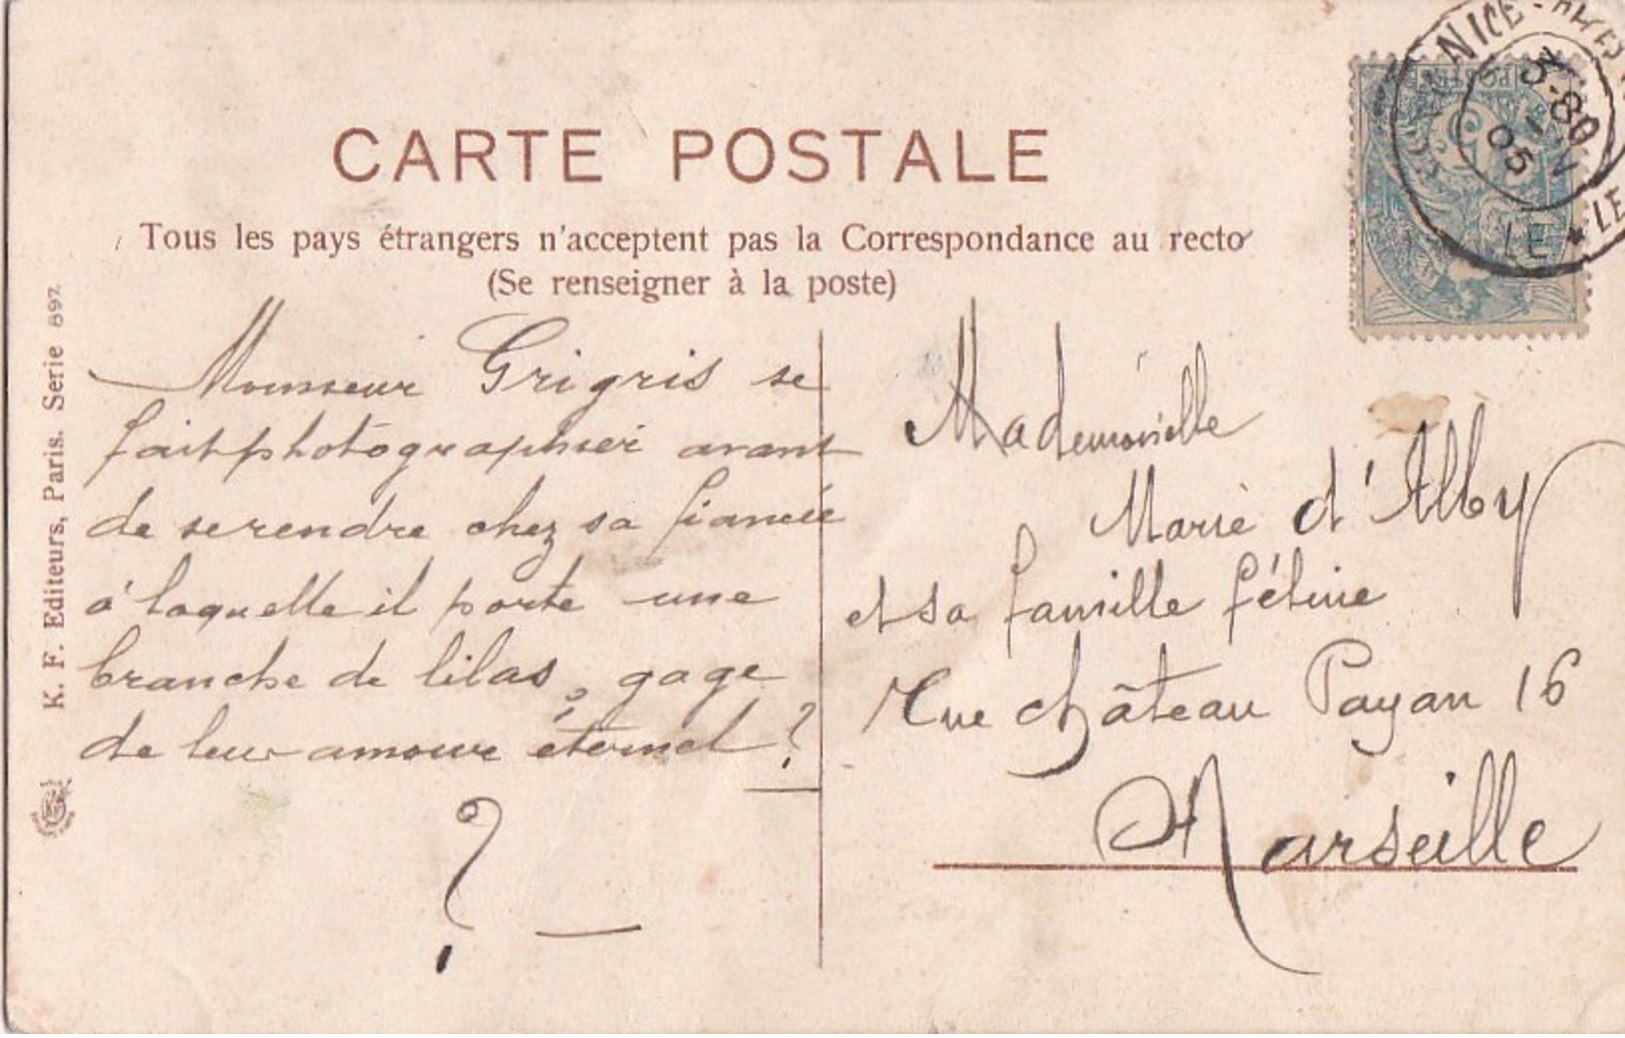 CARTE POSTALE
Tous les pays étrangers n'acceptent pas la Correspondance au recto
(Se renseigner à la poste)
K. F. Editeurs, Paris. Serie 897
Monsieur Grigris se
fait photographier avant
de se rendre chez sa fiancée
à laquelle il porte une
branche de lilas, gage
de leur amour éternel ?
?
Mademoiselle
Marie d'Alby
et sa famille féline
Rue château Payan 16
Marseille
POSTES
NICE
05
LE